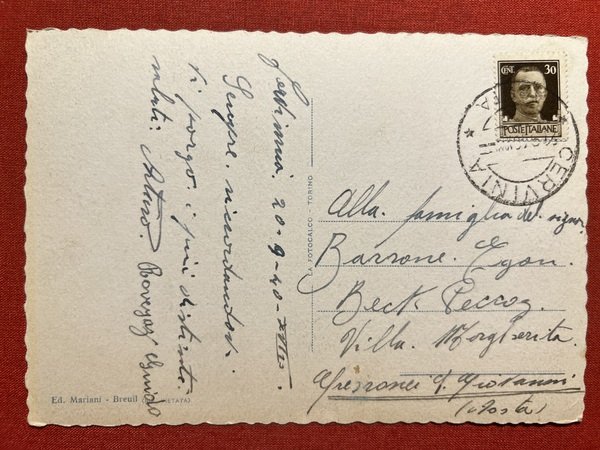 Cervinia. 20-9-40-XVIII.
Sempre ricordandovi
Vi porgo i più distinti
saluti. Arturo
Ed. Mariani - Breuil
LA FOTOCALCO - TORINO
CENT. 30
POSTE ITALIANE
CERVINIA
Alla famiglia del signor
Barrone. Egon.
Beck Peccoz
Villa. Margherita.
Gressonei S. Giovanni
(Aosta)